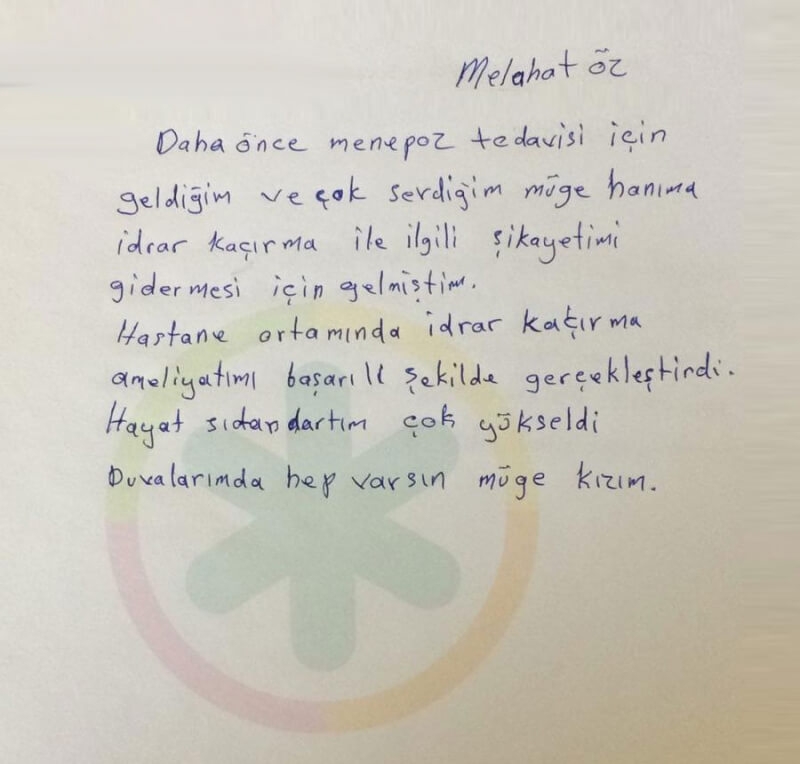 Melahat Öz
Daha önce menepoz tedavisi için
geldiğim ve çok serdiğim müge hanıma
idrar kaçırma ile ilgili şikayetimi
gidermesi için gelmiştim.
Hastane ortamında idrar kaçırma
ameliyatımı başarılı şekilde gerçekleştirdi.
Hayat sıdandartım çok yükseldi
Duvalarımda hep varsın müge kızım.